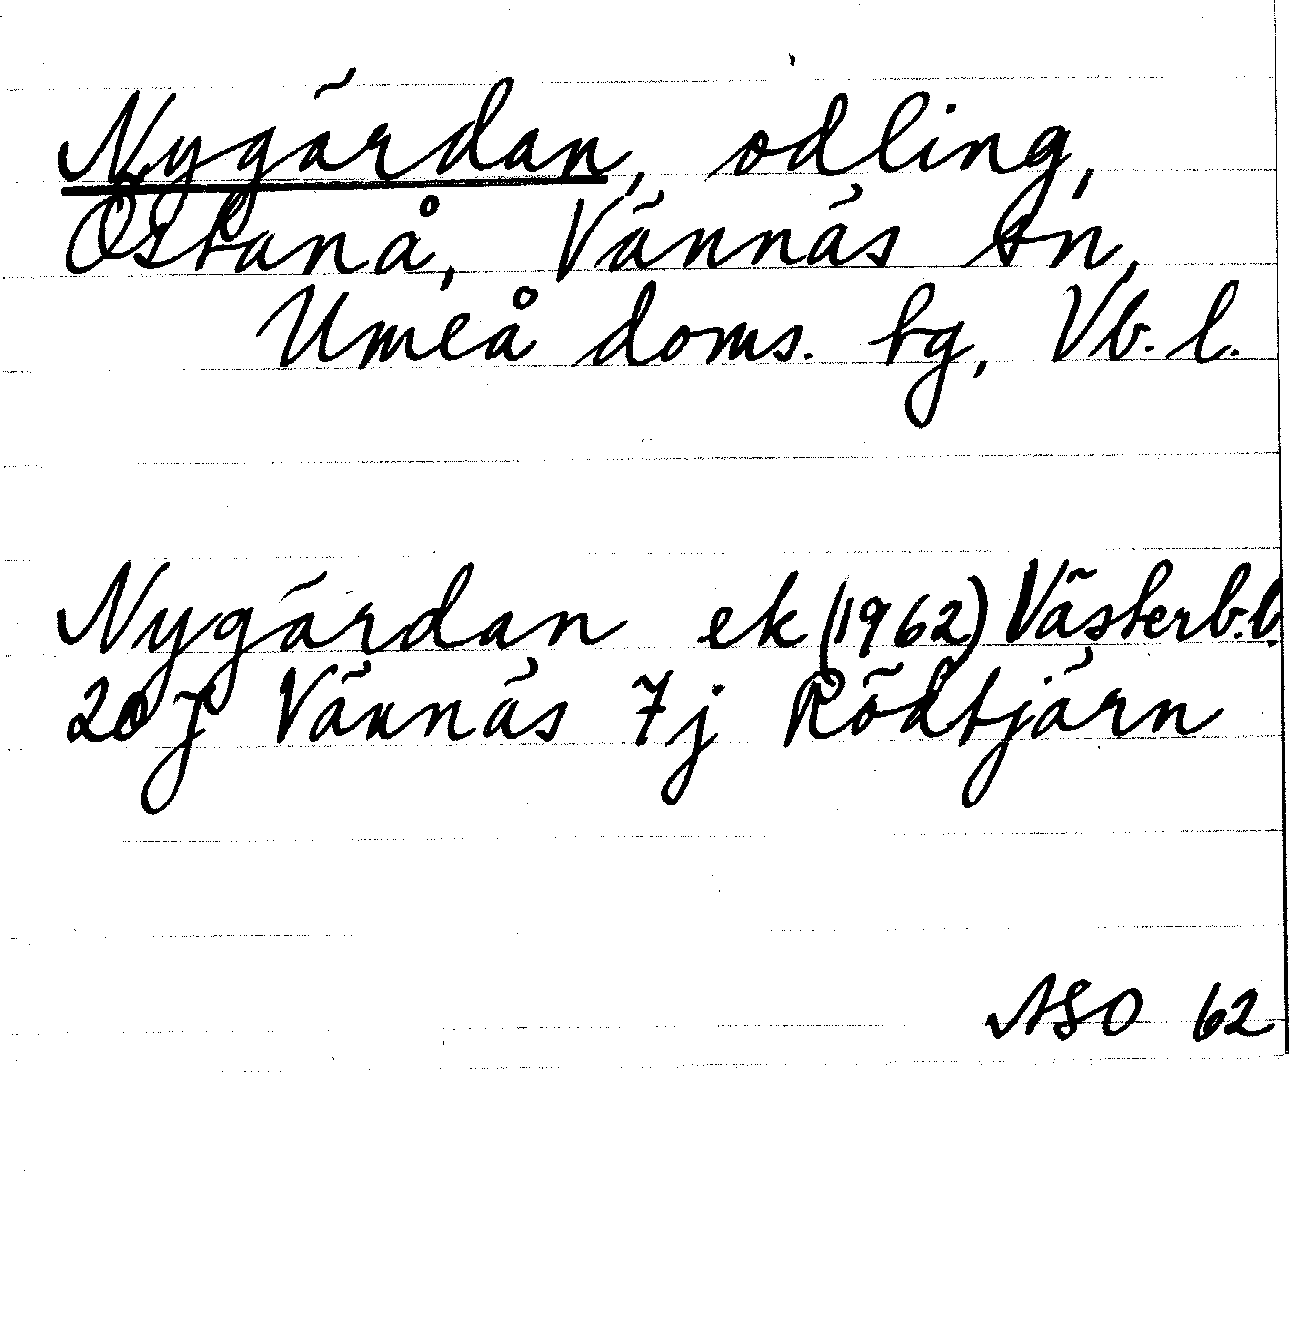 Nygärdan, odling,
Östanå, Vännäs sn,
Umeå doms. tg, Vb. l.
Nygärdan ek (1962) Västerb.l.
20 J Vännäs 7j Rödtjärn
ASO 62